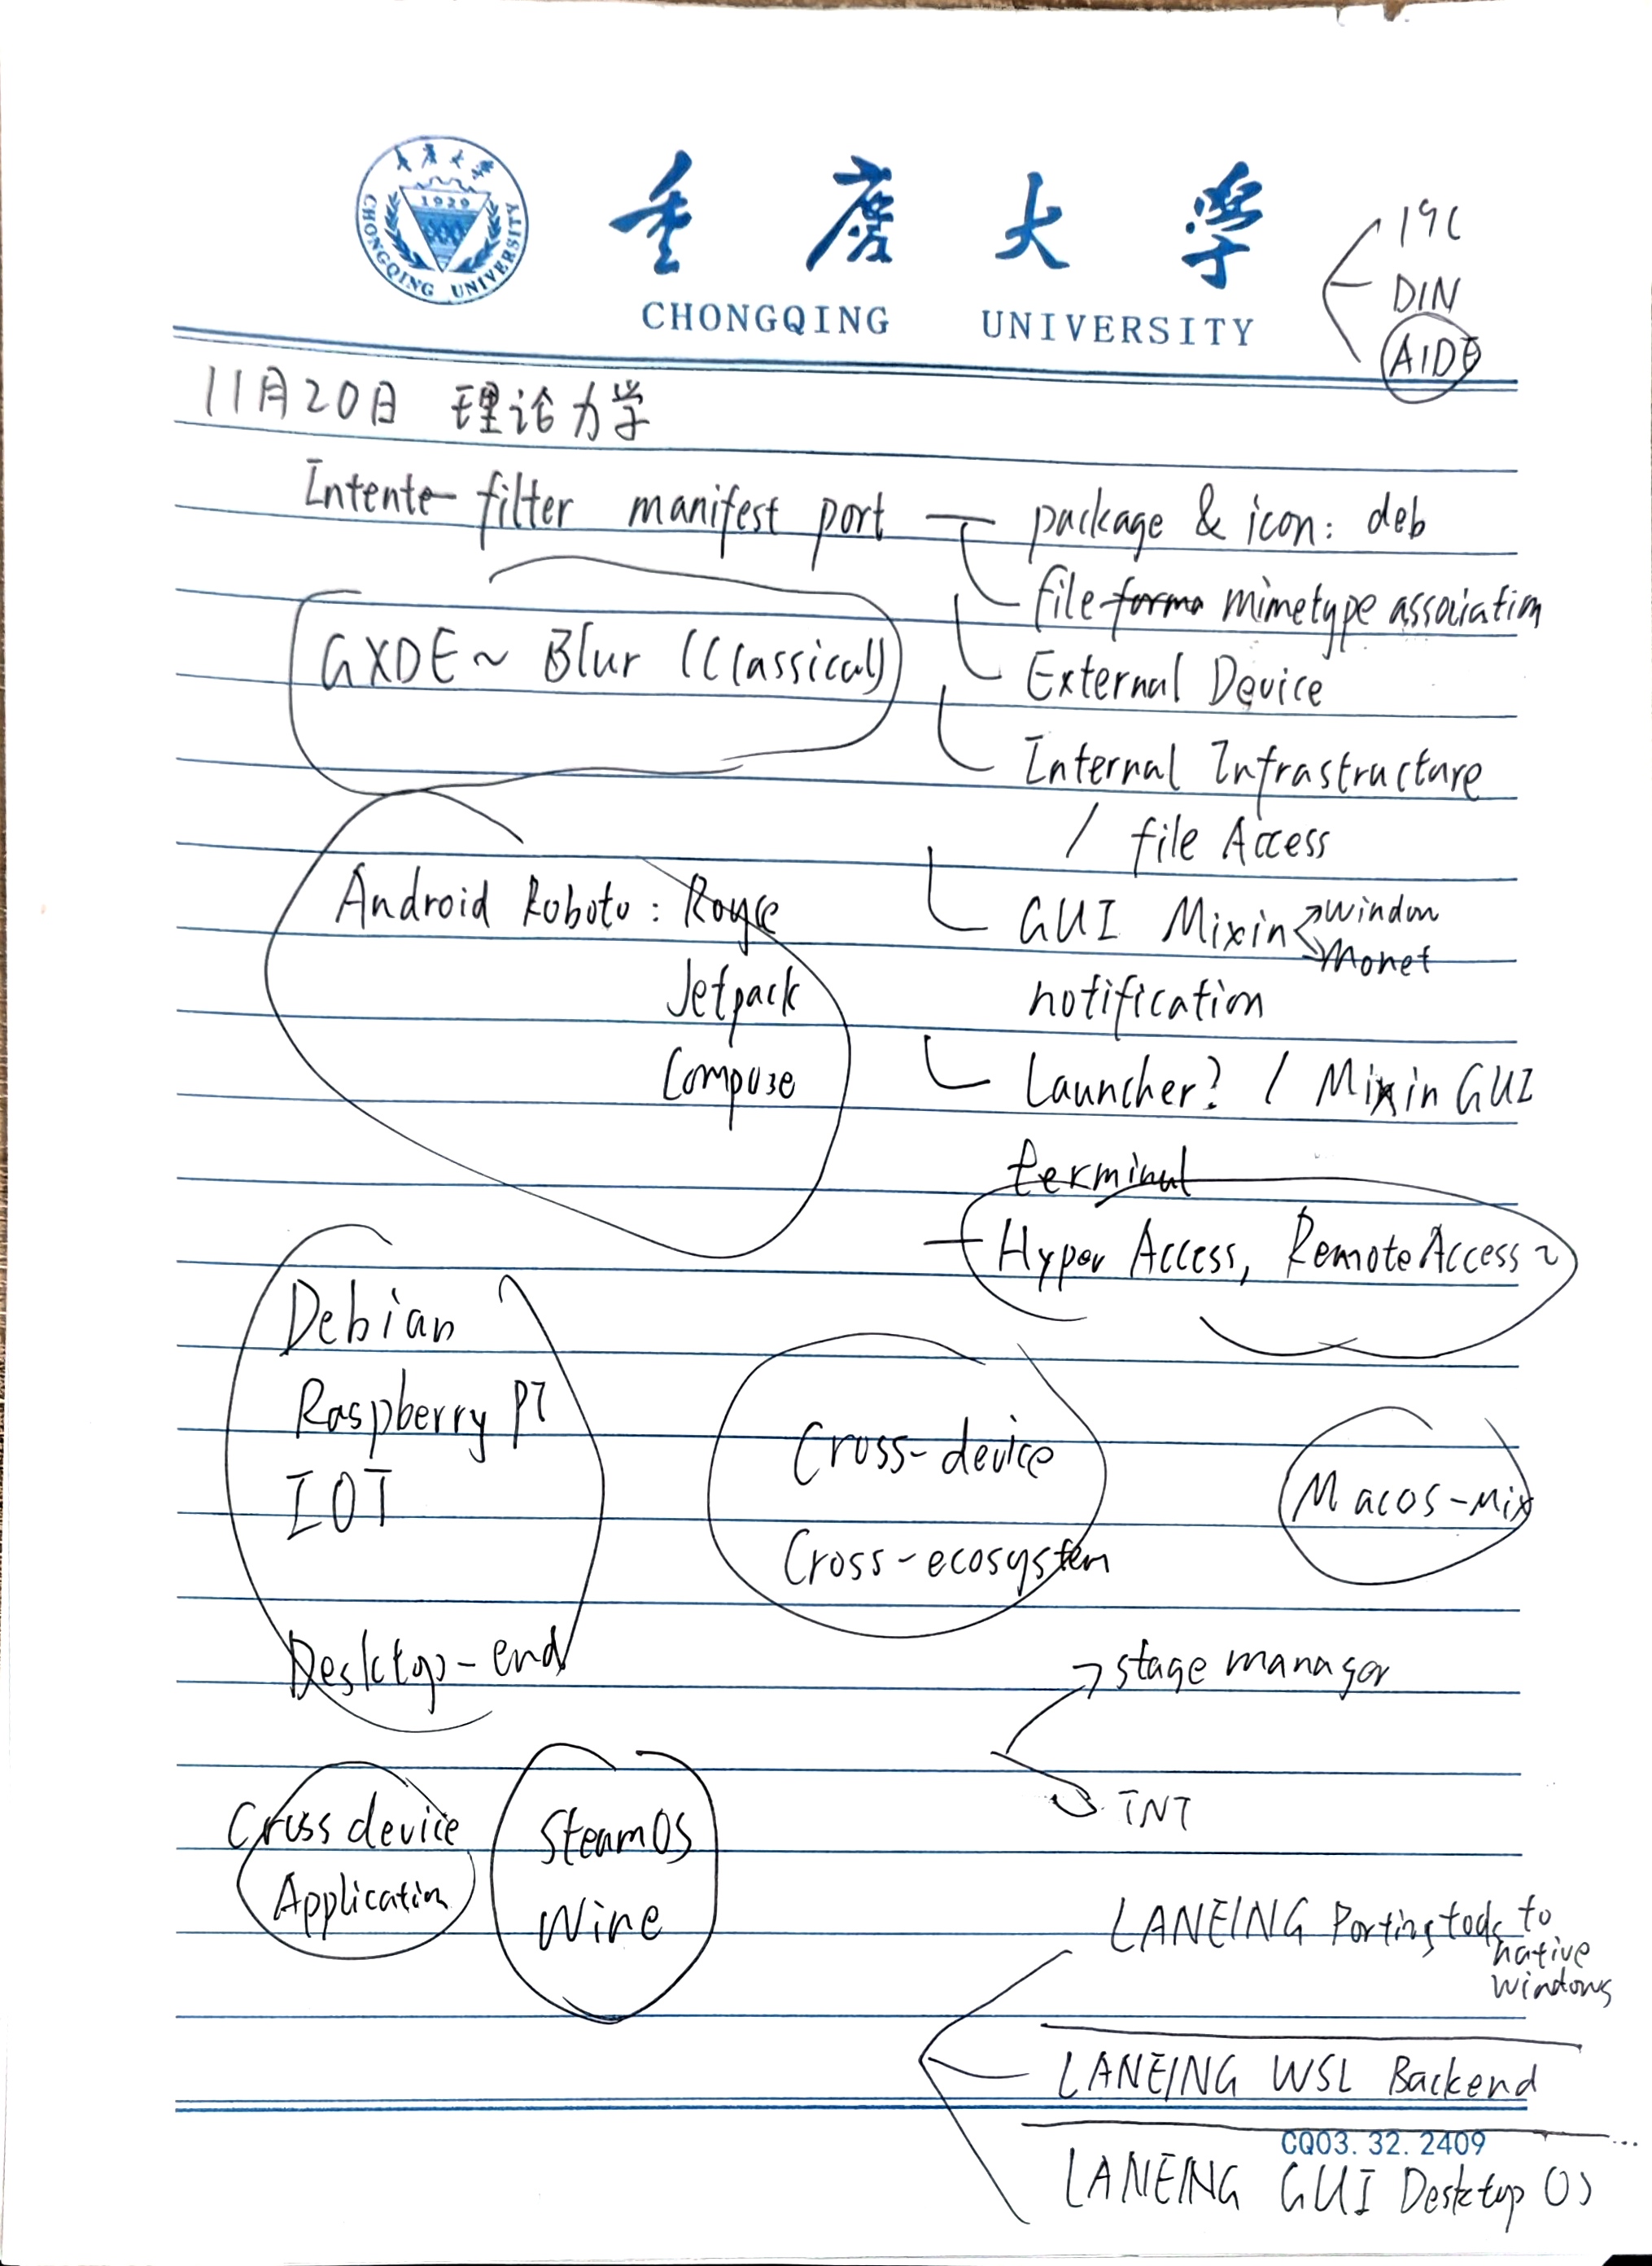 重庆大学
CHONGQING UNIVERSITY
1929
CHONGQING UNIVERSITY
DIN
AIDE
11月20日 理论力学
Intente-filter manifest port
package & icon: deb
file forma mimetype association
External Device
Internal Infrastructure
/ file Access
GUI Mixin
Window
Monet
notification
Launcher? / Mixin GUI
terminal
Hyper Access, Remote Access ~
GXDE ~ Blur (Classical)
Android Roboto:
Jetpack
Compose
Debian
Raspberry PI
IOT
Desktop-end
Cross-device
Cross-ecosystem
Macos-Mix
stage manager
TNT
Cross device
Application
SteamOS
Wine
LANEING Porting tools to
native
windows
LANEING WSL Backend
CQ03.32.2409
LANEING GUI Desktop OS